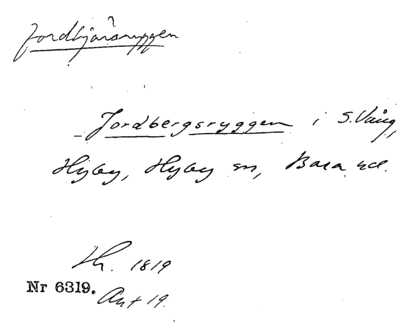 Jordbjärsryggen
Jordbergsryggen i S. Vång,
Hyby, Hyby sn, Bara hd.
Th. 1819
Nr 6319.
Ant 19.